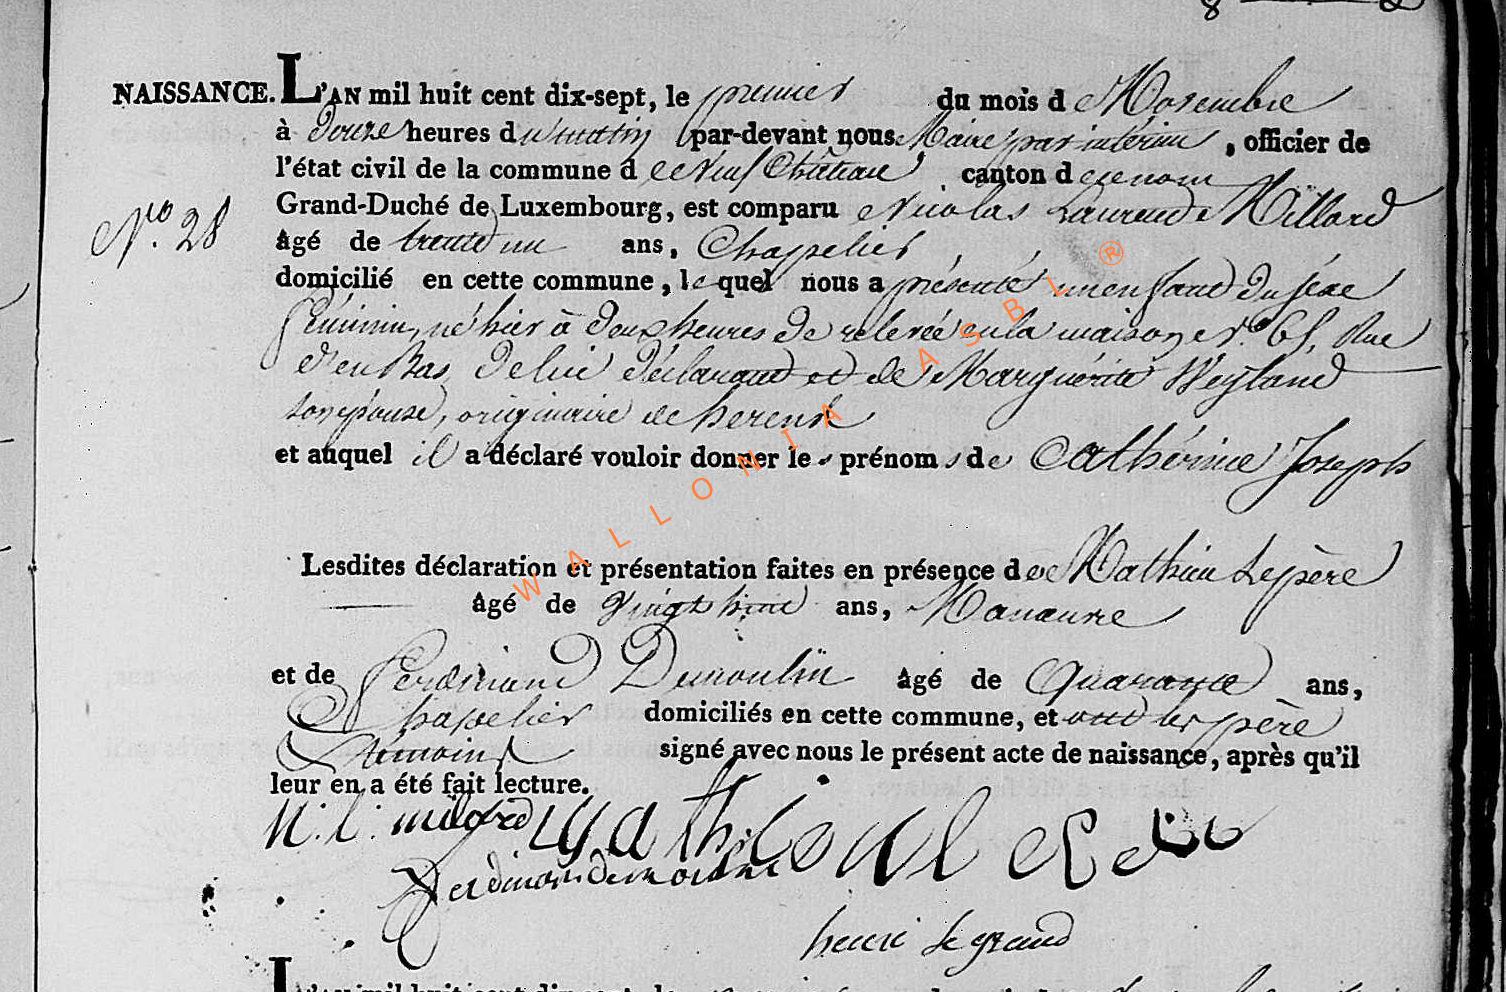 NAISSANCE. L'AN mil huit cent dix-sept, le premier du mois de Novembre
à douze heures du matin par-devant nous Maire par interim, officier de
l'état civil de la commune de Neufchâteau, canton de
Grand-Duché de Luxembourg, est comparu Nicolas Laurend Millard
N.º 28
âgé de trente un ans, Chapelier
domicilié en cette commune, lequel nous a présenté un enfant du séxe
féminin, né hier à deux heures de relevée en la maison N.º 65, Rue
d'en Bas, de lui déclarant et de Marguérite Weyland
son épouse, originaire de
et auquel il a déclaré vouloir donner les prénoms de Cathérine Joseph
Lesdites déclaration et présentation faites en présence de Mathieu Lepère
âgé de vingt huit ans, Manœuvre
et de Ferdinand Demoulin âgé de Quarante ans,
Chapelier domiciliés en cette commune, et ont les père
& témoins signé avec nous le présent acte de naissance, après qu'il
leur en a été fait lecture.
N. l. milord mathieu le
ferdinan
henri le grand
WALLONIA ASBL ®
L'AN mil huit cent dix-sept, le